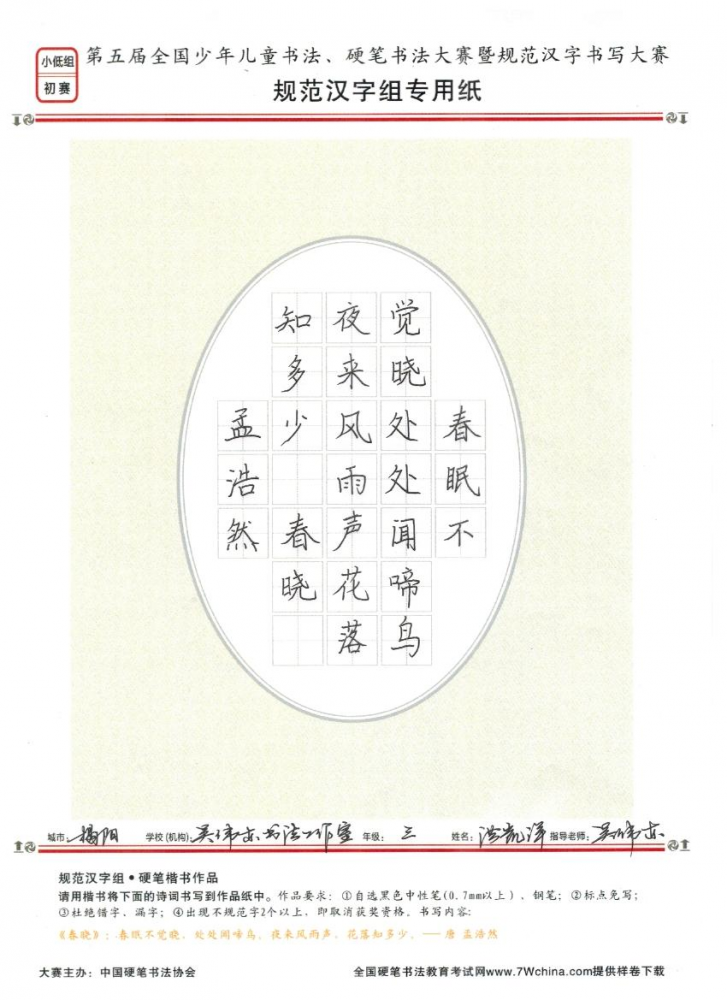 小低组
初赛
第五届全国少年儿童书法、硬笔书法大赛暨规范汉字书写大赛
规范汉字组专用纸
春眠不
觉晓处处闻啼鸟
夜来风雨声花落
知多少 春晓
孟浩然
城市：揭阳 学校(机构)：吴伟亦书法工作室 年级：三 姓名：洪凯洋 指导老师：吴伟亦
规范汉字组•硬笔楷书作品
请用楷书将下面的诗词书写到作品纸中。作品要求：①自选黑色中性笔(0.7mm以上)、钢笔；②标点免写；
③杜绝错字、漏字；④出现不规范字2个以上，即取消获奖资格。书写内容：
《春晓》：春眠不觉晓，处处闻啼鸟，夜来风雨声，花落知多少。——唐 孟浩然
大赛主办：中国硬笔书法协会
全国硬笔书法教育考试网www.7Wchina.com提供样卷下载